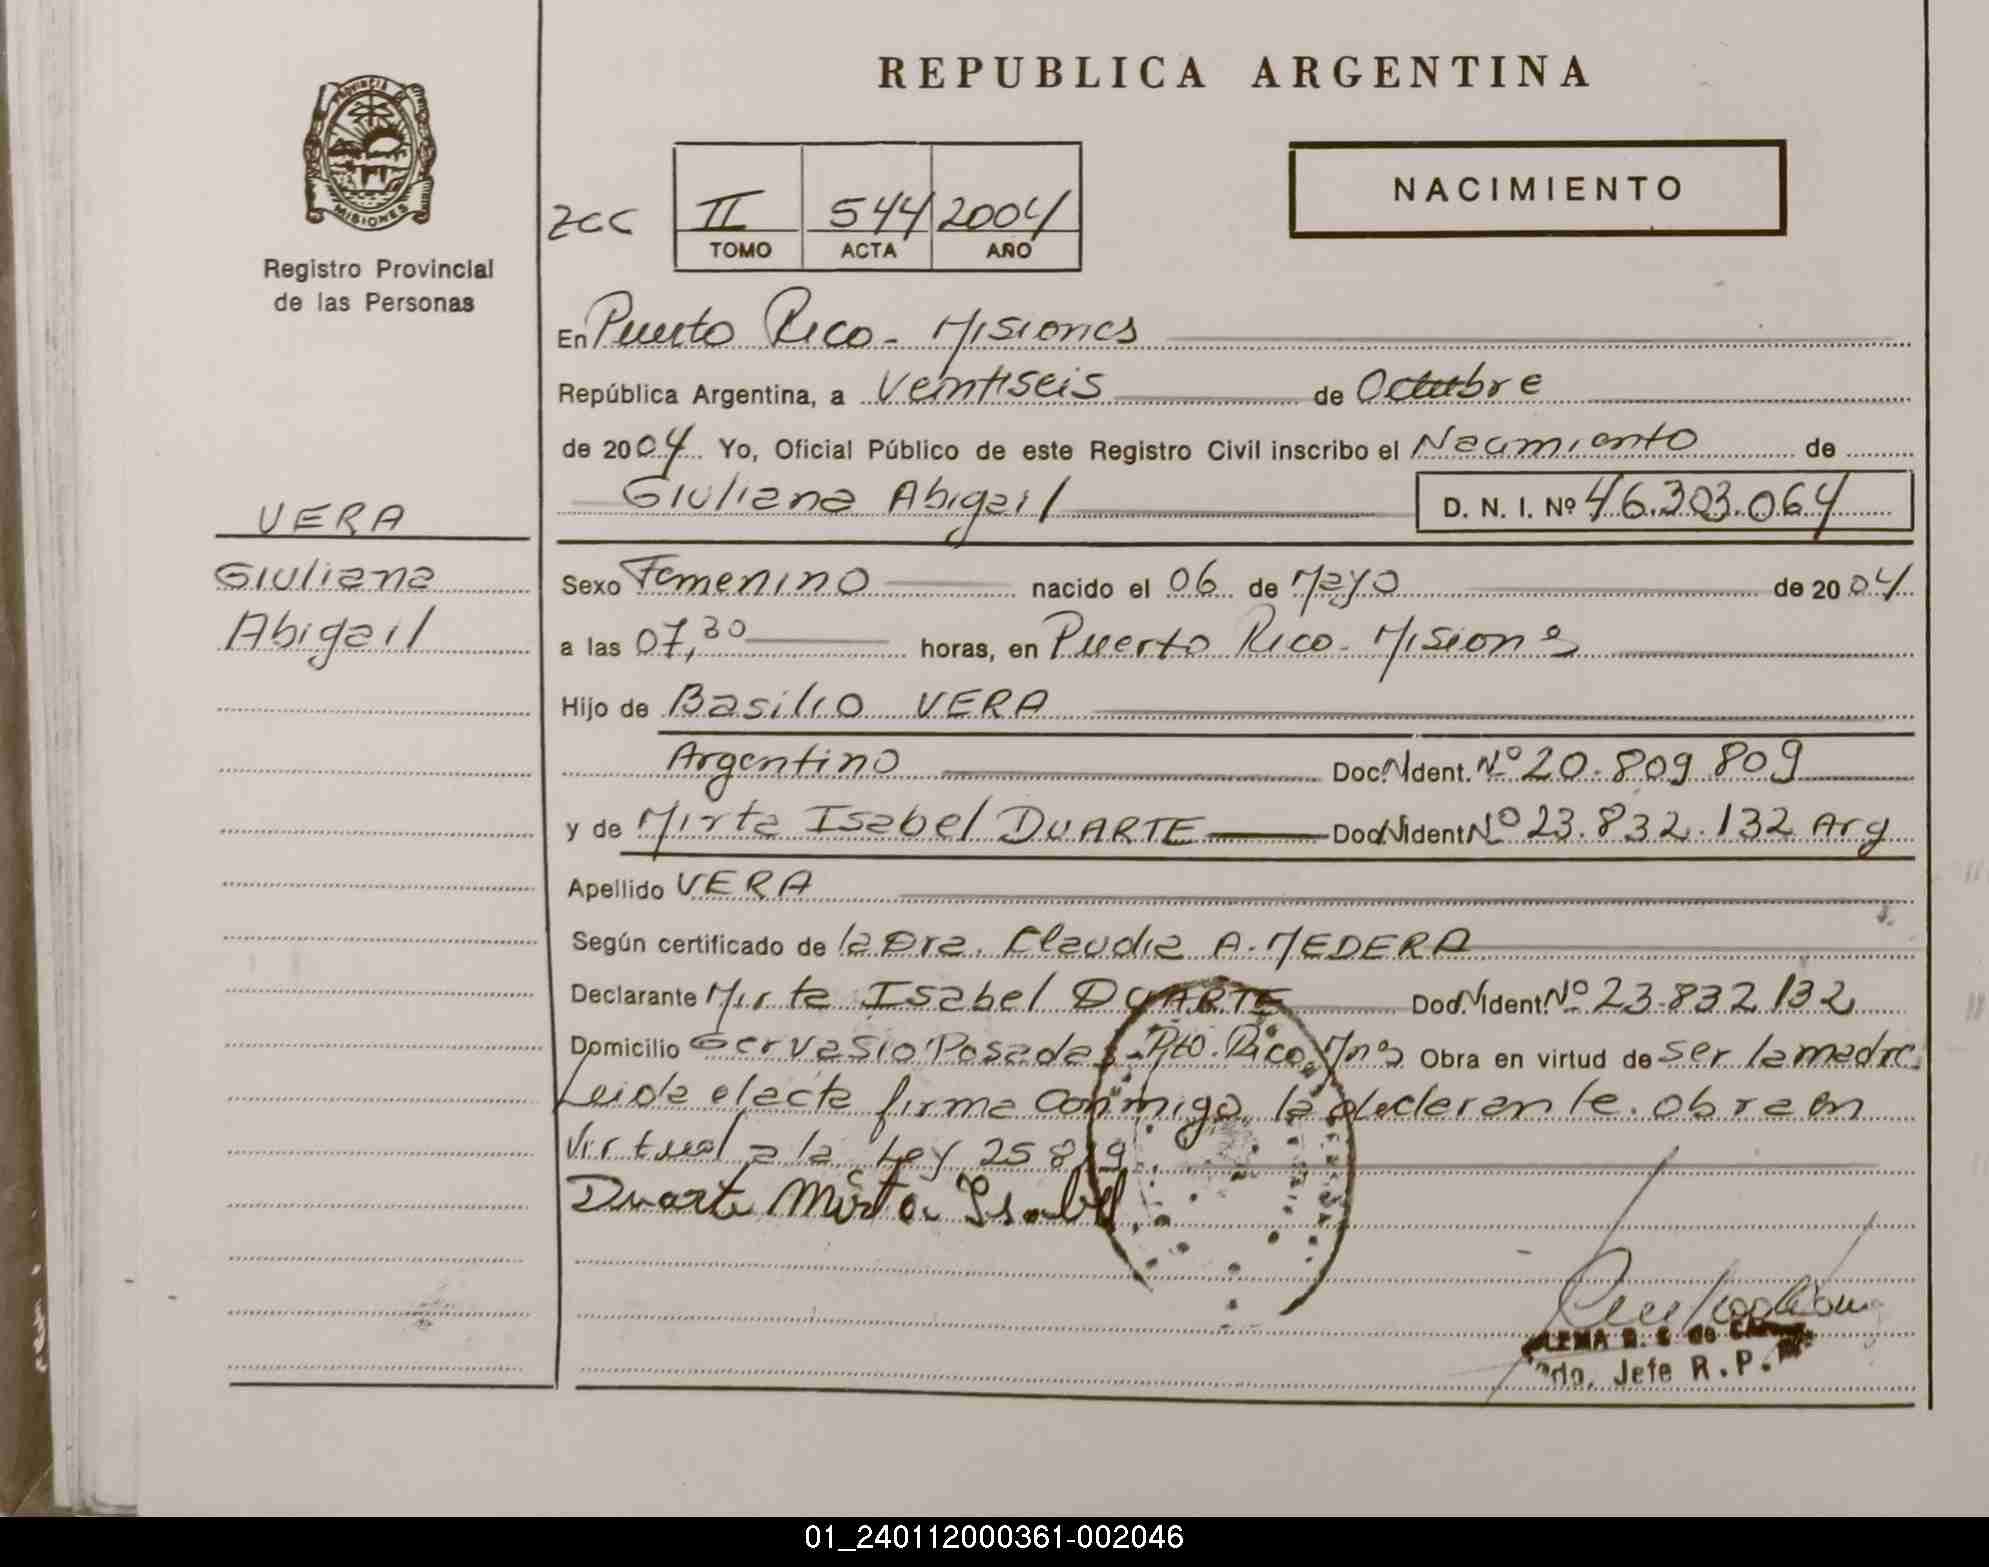 REPUBLICA ARGENTINA
PROVINCIA DE
MISIONES
Registro Provincial
de las Personas
NACIMIENTO
II 544 2004
TOMO ACTA AÑO
VERA
Giuliana
Abigail
En Puerto Rico - Misiones
República Argentina, a Veintiseis de Octubre
de 2004. Yo, Oficial Público de este Registro Civil inscribo el Nacimiento de
Giuliana Abigail D. N. I. Nº 46.303.064
Sexo Femenino nacido el 06 de Mayo de 2004
a las 07,30 horas, en Puerto Rico - Misiones
Hijo de Basilio VERA
Argentino Doc. N Ident. Nº 20.809.809
y de Mirta Isabel DUARTE Doc. N Ident Nº 23.832.132 Arg
Apellido VERA
Según certificado de la Dra. Claudia A. MEDERA
Declarante Mirta Isabel DUARTE Doc. N Ident. Nº 23.832.132
Domicilio Gervasio Posadas - Pto. Rico Mnes Obra en virtud de ser la madre.
Leida el acta firma conmigo la declarante. obra en
virtud a la Ley 25819
Duarte Mirta Isabel
R. S. de
Jefe R. P.
01_240112000361-002046